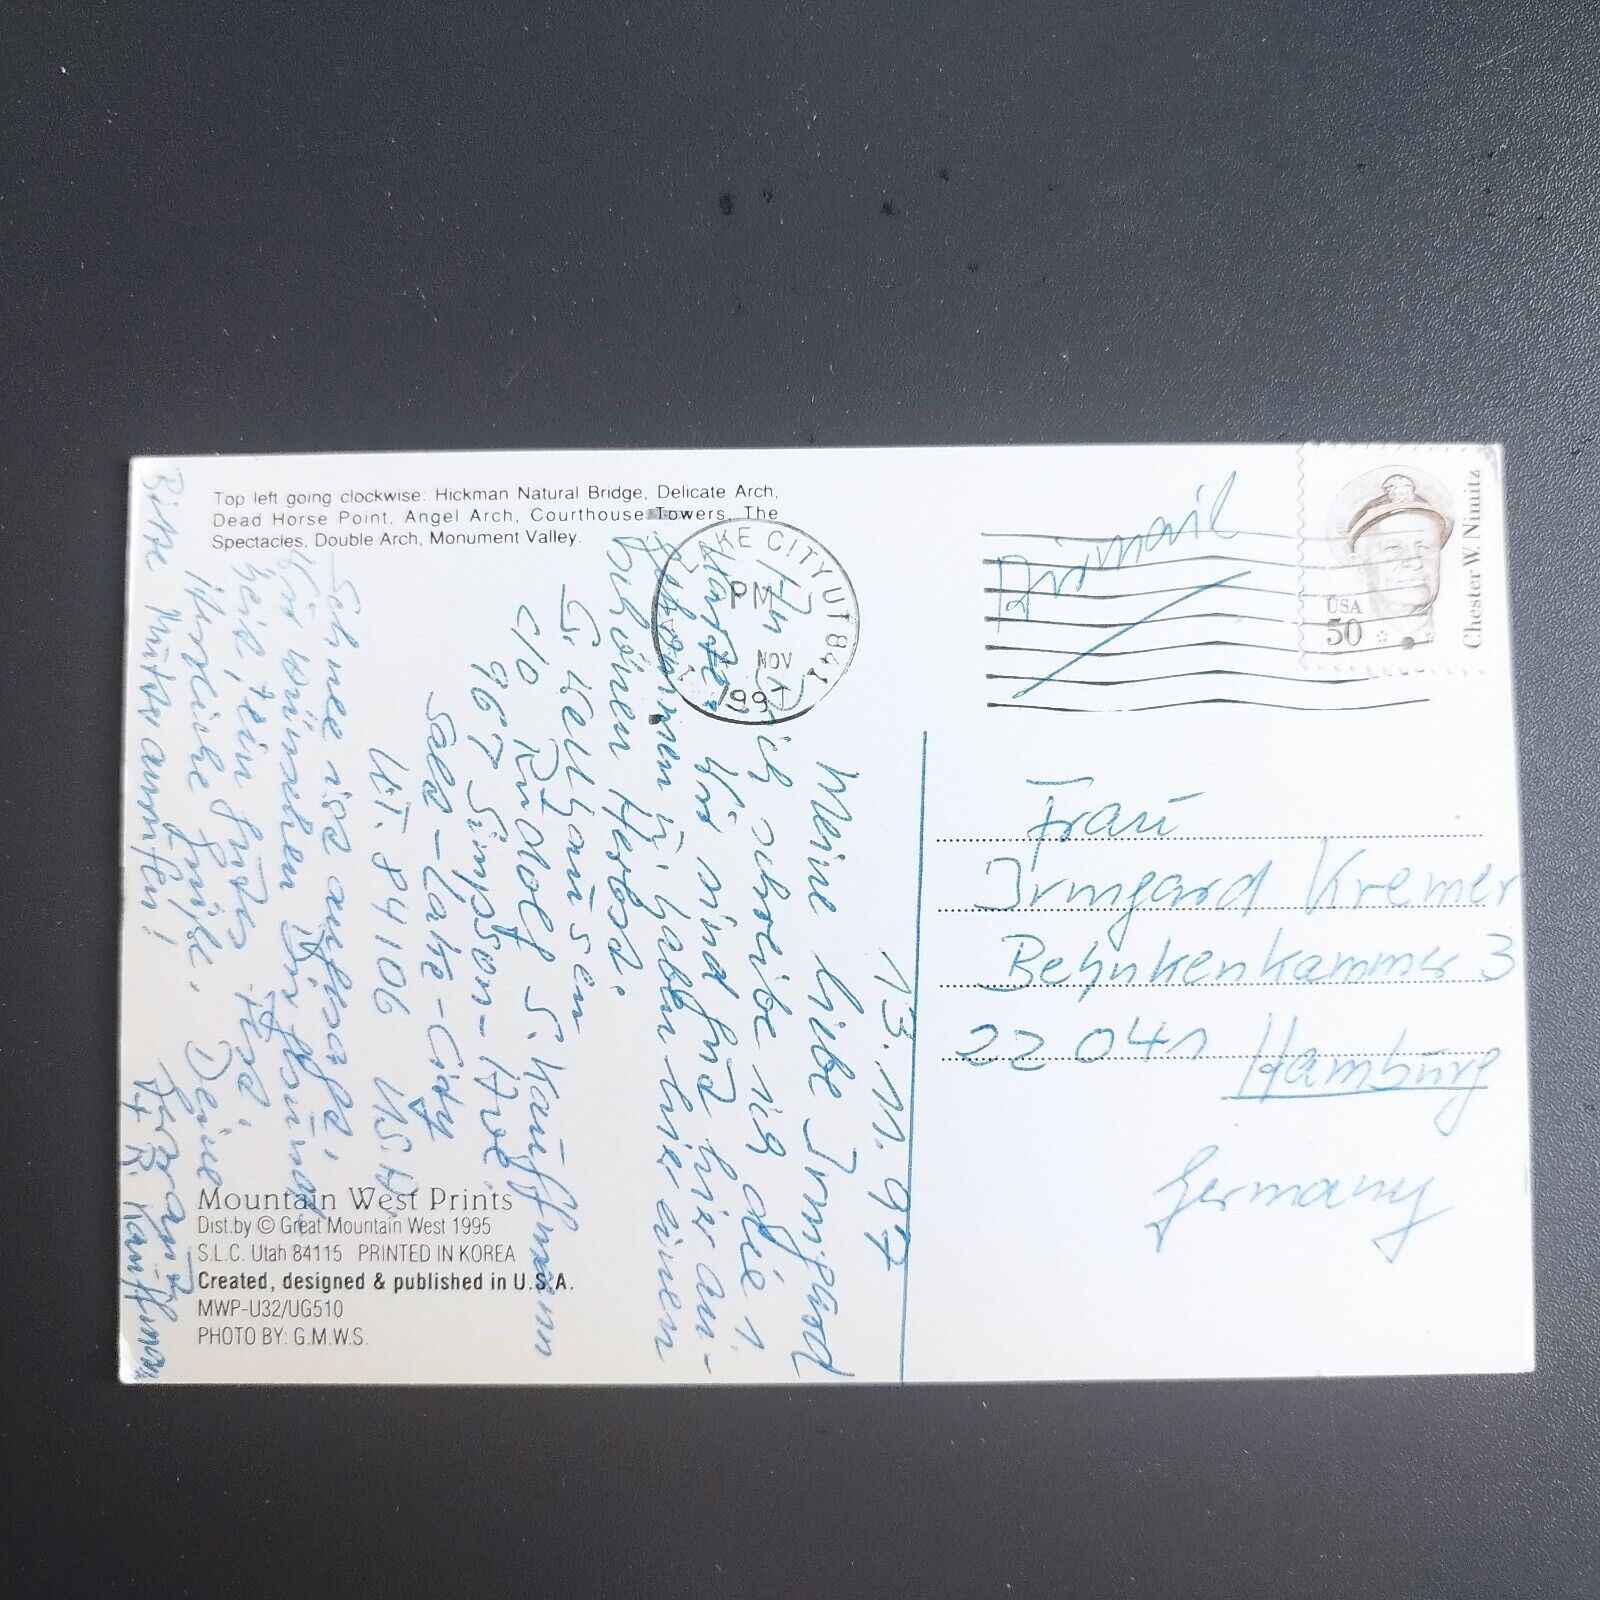 Top left going clockwise: Hickman Natural Bridge, Delicate Arch,
Dead Horse Point, Angel Arch, Courthouse Towers, The
Spectacles, Double Arch, Monument Valley.
LAKE CITY UT 841
PM
NOV
1997
Airmail
USA
50
Chester W. Nimitz
13.11.97
Meine liebe Irmgard
An Dich schreibe ich die 1.
Karte. Wir sind gut hier an-
gekommen u. haben hier einen
schönen Herbst.
G. Kelhausen
c/o Rudolf S. Kauffmann
967 Simpson-Ave
Salt-Lake-City
UT. 84106 USA
Schnee ist angesagt.
Wir wünschen Dir Gesund
heit, sein
Herzliche Grüße. Deine
Bitte Mütze
R. Kauffmann
Frau
Irmgard Kremer
Behnkenkammer 3
22041 Hamburg
Germany
Mountain West Prints
Dist. by © Great Mountain West 1995
S.L.C. Utah 84115 PRINTED IN KOREA
Created, designed & published in U.S.A.
MWP-U32/UG510
PHOTO BY: G.M.W.S.